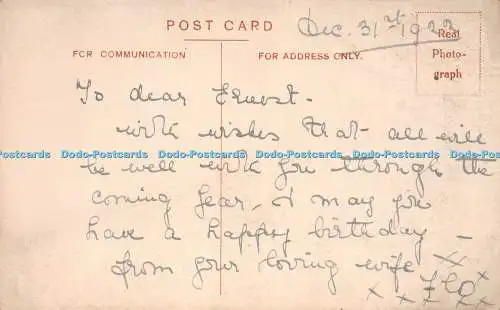 POST CARD
Dec. 31st 1922
FOR COMMUNICATION
FOR ADDRESS ONLY.
Real
Photo-
graph
To dear Ernest -
with wishes that all will
Dodo-Postcards Dodo-Postcards Dodo-Postcards Dodo-Postcards Dodo-Postcards
be well with you through the
coming year, & may you
have a happy birthday -
from your loving wife
x x
x x x x Flo